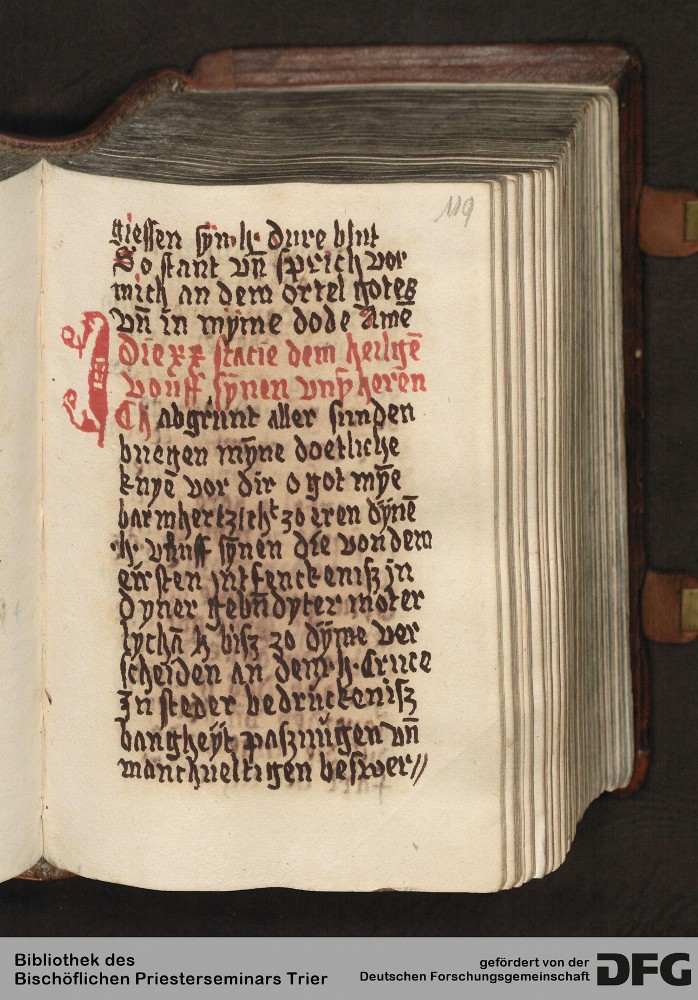 119
giessen syn h. dure blut
So stant vn̄ sprich vor
mich an dem ortel gotes
vn̄ in myme dode Amē
die xx statie dem heiligē
vonff synen vnsz heren
Ich abgrunt aller sunden
buegen myne doetliche
knyē vor dir o got mȳe
barmhertzicht zo eren dynē
.h. vunff synen die von dem
eirsten intfenckenisz in
dyner gebn̄dyter moter
lychā bisz zo dyme ver
scheiden an dem .h. Cruce
In steder bedruckenisz
bangheyt vn̄
manchueltigen beswer//
Bibliothek des
Bischöflichen Priesterseminars Trier
gefördert von der
Deutschen Forschungsgemeinschaft
DFG